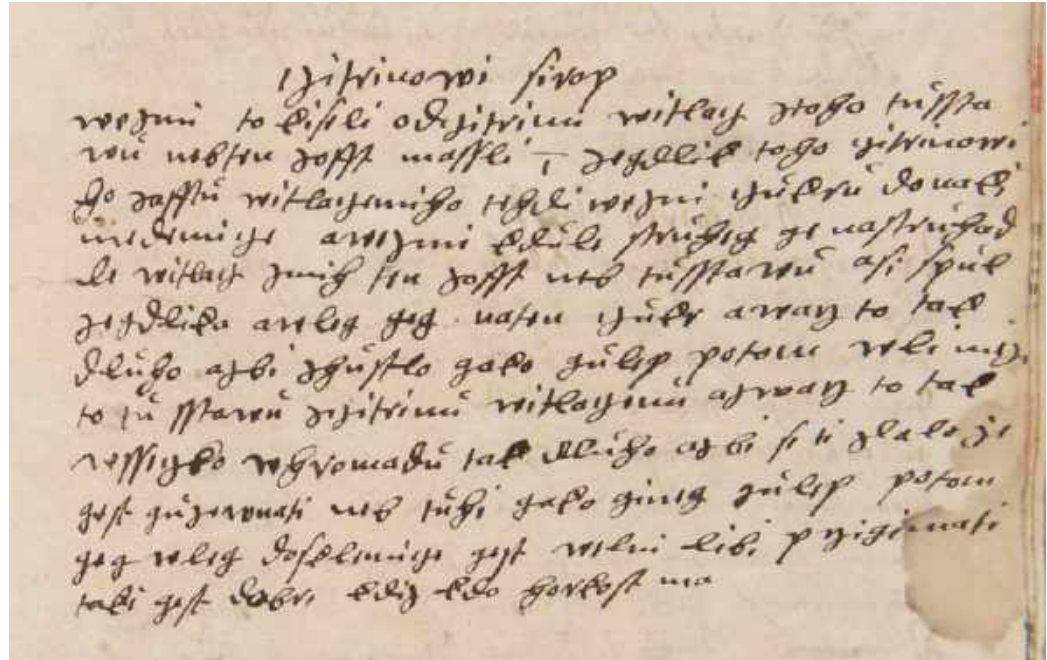 czitrinowi sirop
wezmi to kiseli odczitrinu witlacz ztoho tu ssta
wu nebten zofft massli 1 zegdlik toho czitrinowi
ho zafftu witlaczeniho tehdi wezmi czukru donaki
medenicze awezmi kdule struheg ge nastruhad
le witlacz znich ten zofft neb tu sstawu asi spul
zegdlika awleg geg naten czukr awarz to tak
dluho azbi zhustlo gako gulep potom wli
to tu sstawu zczitrinu witlaczenu azwarz to tak
wssiczko whromadu tak dluho azbi se ti zdalo ze
gest guz neb tuhi gako gineg gulep potom
geg wleg dosklenicze gest welmi libi przigimati
taki gest dobri kdiz kdo horkost ma